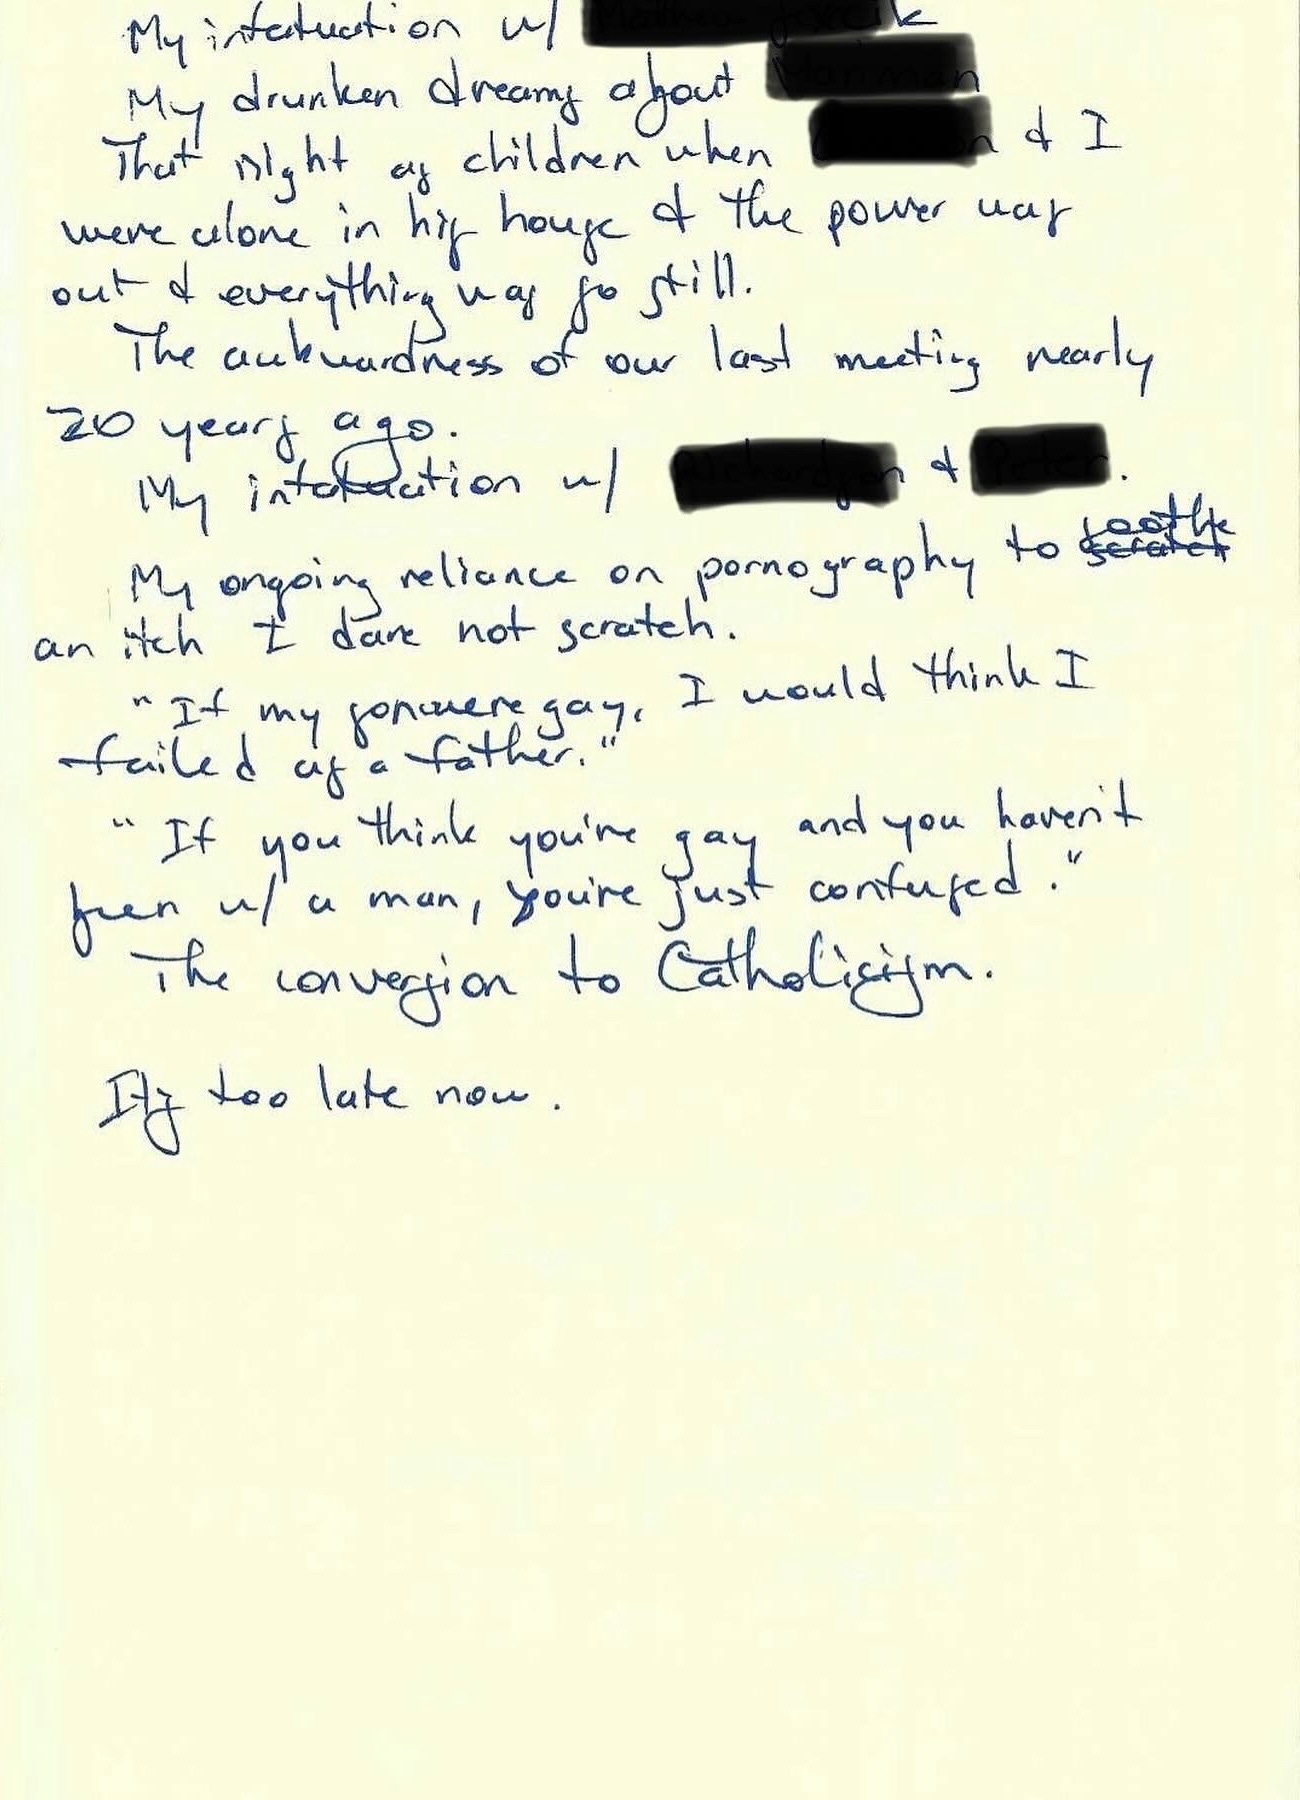 My infatuation w/
My drunken dreams about
That night as children when & I
were alone in his house & the power was
out & everything was so still.
The awkwardness of our last meeting nearly
20 years ago.
My infatuation w/ & .
My ongoing reliance on pornography to soothe scratch
an itch I dare not scratch.
"If my son were gay, I would think I
failed as a father."
"If you think you're gay and you haven't
been w/ a man, you're just confused."
The conversion to Catholicism.
Its too late now.